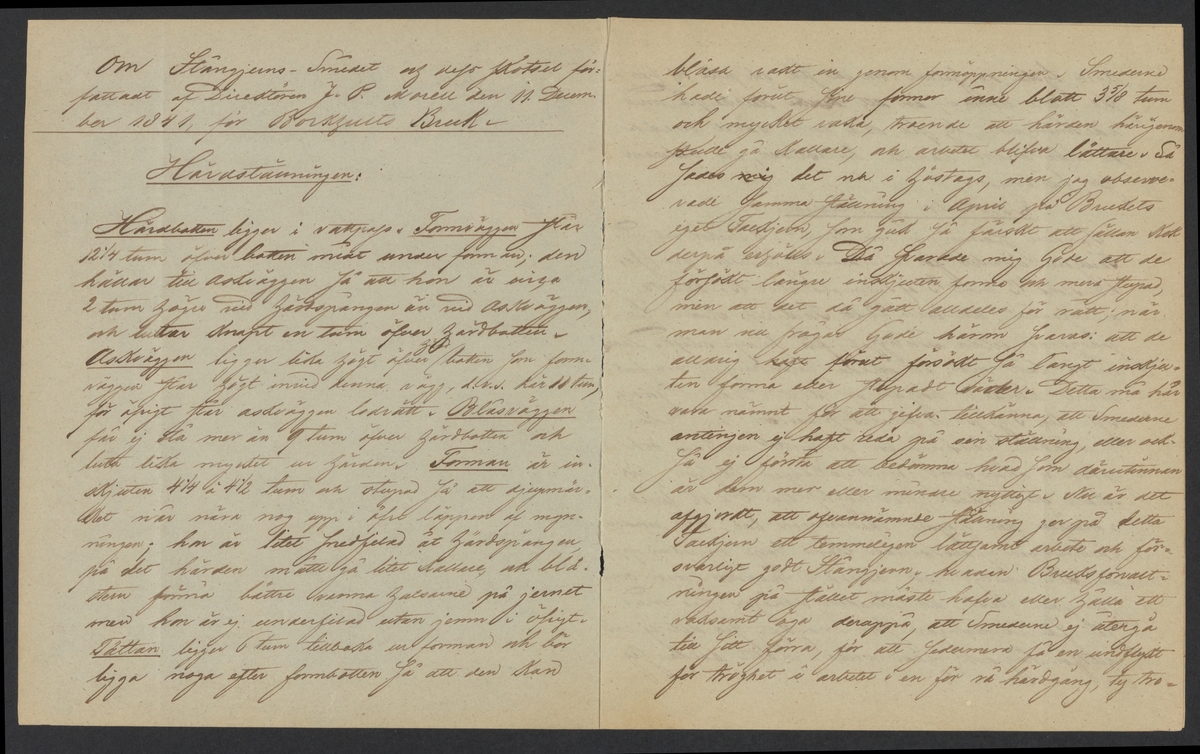 Om Stångjerns-Smidet och dess skötsel för-
fattadt af Directören J. P. Morell den 11 Decem-
ber 1841, för Borkhults Bruk.
Härdställningen:
Härdbotten ligger i vattpass. Formväggen står
12 1/4 tum öfver botten midt under forman; den
hällar till askväggen så att hon är circa
2 tum högre vid härdspången än vid askväggen,
och lutar knapt en tum öfver härdbotten.
Askväggen ligger lika högt öfver botten som form-
väggen står högt invid denna vägg, d.v.s. här 11 tum,
för öfrigt står askväggen lodrätt. Blåsväggen
får ej stå mer än 9 tum öfver härdbotten och
luta lika mycket ur härden. Forman är in-
skjuten 4 1/4 à 4 1/2 tum och stupad så att
når nära nog upp i öfre läppen af myn-
ningen; hon är litet snedfilad åt härdspången
på det härden måtte gå litet kallare, och blä-
stern förmå bättre värma halsarne på jernet
men hon är ej underfilad utan jemn i öfrigt.
Tättan ligger 6 tum tillbaka ur forman och bör
ligga noga efter formbotten så att den kan
blåsa rakt in genom formöppningen. Smederne
hade förut sine formor inne blott 3 5/8 tum
och mycket raka, troende att härden härigenom
skulle gå kallare, och arbetet blifva lättare. Så
sades mig det nu i höstas, men jag observe-
rade samma ställning i April på Brukets
eget Tackjern, som gick så färskt att sällan
derpå behöfdes. Då svarade mig både att de
försökt längre inskjuten forma och mera stupad,
men att det då gått alldeles för rått; när
man nu frågar både härom svaras: att de
aldrig haft förut försökt så långt inskju-
ten forma eller stupadt. Detta må här
vara nämnt för att gifva tillkänna, att Smederne
antingen ej haft reda på sin ställning, eller ock-
så ej förstå att bedömma hvad som därutinnan
är dem mer eller mindre nyttigt. Nu är det
afgjordt, att ofvannämnde ställning ger på detta
Tackjern ett temmeligen lättsamt arbete och för-
svarligt godt Stångjern, hvadan Bruksförvalt-
ningen på stället måste hafva eller hålla ett
vaksamt öga derappå, att Smederne ej återgå
till sitt förra, för att sedermera få en undflykt
för tröghet i arbetet i en för rå härdgång, ty tro-